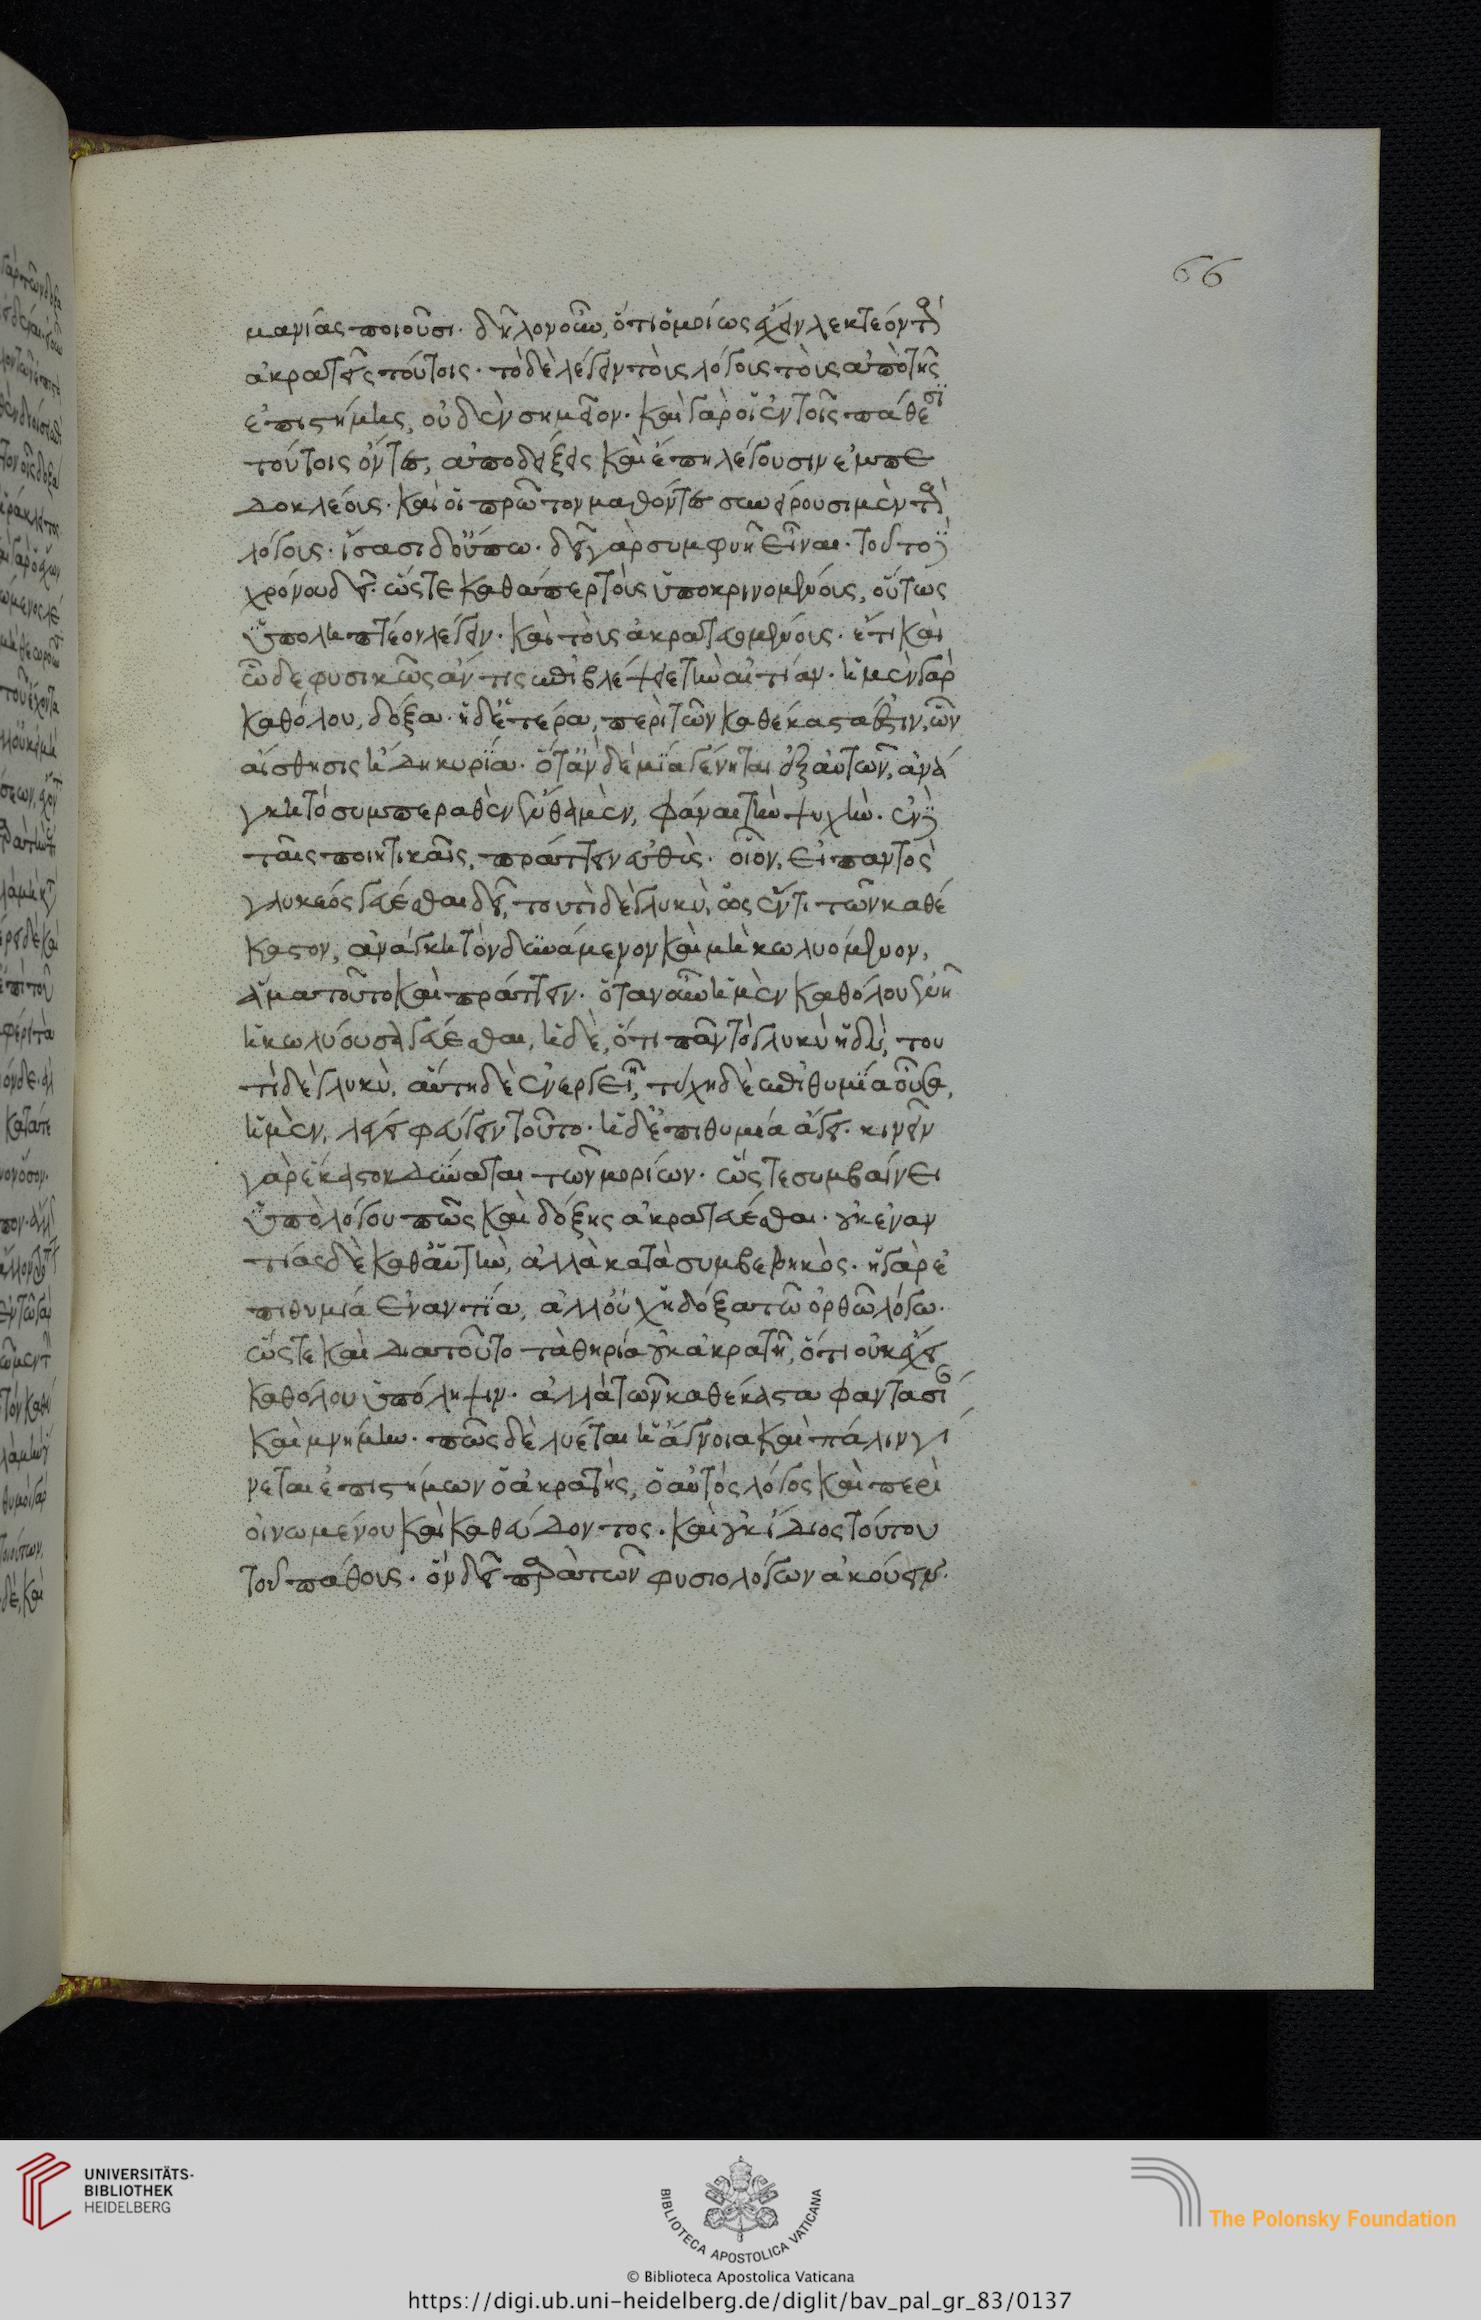 66
μανίας ποιοῦσι· δῆλον οὖν, ὅτι ὁμοίως ἔχειν λεκτέον τοὺς
ἀκρατεῖς τούτοις· τὸ δὲ λέγειν τοὺς λόγους τοὺς ἀπὸ τῆς
ἐπιστήμης, οὐδὲν σημεῖον· καὶ γὰρ οἱ ἐν τοῖς πάθεσι
τούτοις ὄντες, ἀποδείξεις καὶ ἔπη λέγουσιν ἐμπε
δοκλέους· καὶ οἱ πρῶτον μαθόντες συνείρουσι μὲν τοὺς
λόγους· ἴσασι δ' οὔπω· δεῖ γὰρ συμφυῆ εἶναι· τοῦ τοῦ
χρόνου δεῖ· ὥστε καθάπερ τοὺς ὑποκρινομένους, οὕτως
ὑποληπτέον λέγειν· καὶ τοὺς ἀκρατευομένους· ἔτι καὶ
ὧδε φυσικῶς ἄν τις ἐπιβλέψειε τὴν αἰτίαν· ἡ μὲν γὰρ
καθόλου, δόξα· ἡ δ' ἑτέρα, περὶ τῶν καθέκαστά ἐστιν, ὧν
αἴσθησις ἤδη κυρία· ὅταν δὲ μία γένηται ἐξ αὐτῶν, ἀνά
γκη τὸ συμπερανθὲν ἔνθα μὲν, φάναι τὴν ψυχὴν· ἐν
ταῖς ποιητικαῖς, πράττειν εὐθὺς· οἷον, εἰ παντὸς
γλυκέος γεύεσθαι δεῖ, τουτὶ δὲ γλυκὺ, ὡς ἕν τι τῶν καθέ
καστον, ἀνάγκη τὸν δυνάμενον καὶ μὴ κωλυόμενον,
ἅμα τοῦτο καὶ πράττειν· ὅταν οὖν ἡ μὲν καθόλου ἐνῇ
ἡ κωλύουσα γεύεσθαι, ἡ δὲ, ὅτι πᾶν τὸ γλυκὺ ἡδὺ, του
τὶ δὲ γλυκὺ, αὕτη δὲ ἐνεργεῖ, τύχη δὲ ἐπιθυμία ἐνοῦσα,
ἡ μὲν, λέγει φεύγειν τοῦτο· ἡ δ' ἐπιθυμία ἄγει· κινεῖν
γὰρ ἕκαστον δύναται τῶν μορίων· ὥστε συμβαίνει
ὑπὸ λόγου πως καὶ δόξης ἀκρατεύεσθαι· οὐκ ἐναν
τίας δὲ καθ' αὑτὴν, ἀλλὰ κατὰ συμβεβηκὸς· ἡ γὰρ ἐ
πιθυμία ἐναντία, ἀλλ' οὐχ ἡ δόξα τῷ ὀρθῷ λόγῳ·
ὥστε καὶ διὰ τοῦτο τὰ θηρία οὐκ ἀκρατῆ, ὅτι οὐκ ἔχει
καθόλου ὑπόληψιν· ἀλλὰ τῶν καθέκαστα φαντασίαν
καὶ μνήμην· πῶς δὲ λύεται ἡ ἄγνοια καὶ πάλιν γί
νεται ἐπιστήμων ὁ ἀκρατὴς, ὁ αὐτὸς λόγος καὶ περὶ
οἰνωμένου καὶ καθεύδοντος· καὶ οὐκ ἴδιος τούτου
τοῦ πάθους· ὃν δεῖ παρὰ τῶν φυσιολόγων ἀκούειν·
UNIVERSITÄTS-
BIBLIOTHEK
HEIDELBERG
BIBLIOTECA APOSTOLICA VATICANA
The Polonsky Foundation
© Biblioteca Apostolica Vaticana
https://digi.ub.uni-heidelberg.de/diglit/bav_pal_gr_83/0137